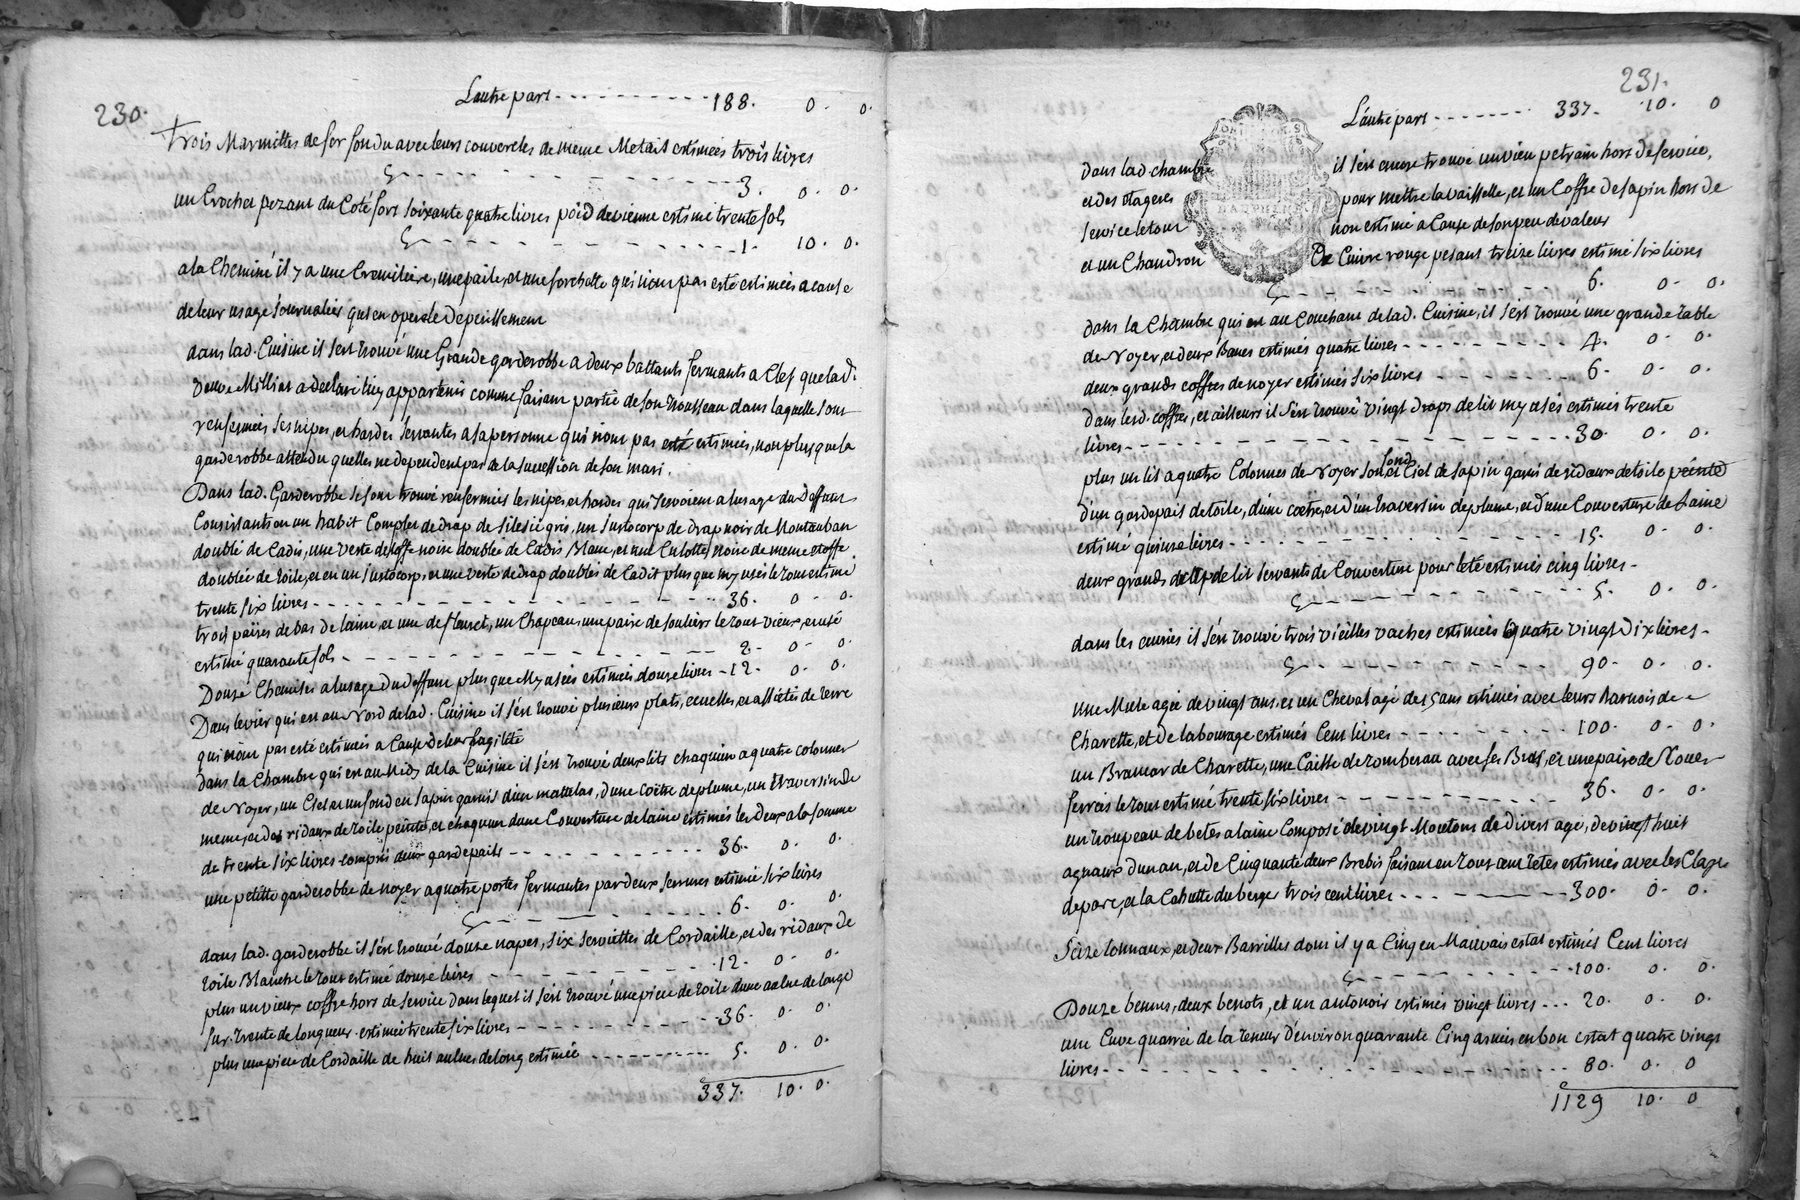 230.
L'autre part - - - - - - - - - - - 188. 0. 0.
Trois Marmittes de fer fondu avec leurs couvercles de meme Metail estimées trois livres
- - - - - - - - - - 3. 0. 0.
un Crochet pezant du Coté fort soixante quatre livres poid de vienne estimé trente sols
- - - - - - - - - - 1. 10. 0.
a la Cheminé il y a une Cremiliere, une paile, et une forchette qui n'ont pas esté estimées a cause
de leur usage journalier qui en opere le deperissement
dans lad. Cuisine il s'est trouvé une Grande garderobbe a deux battants fermants a Clef que lad.
veuve Millias a declaré luy appartenir comme faisant partie de son trousseau dans laquelle sont
renfermées ses nipes, et hardes servantes a sa personne qui n'ont pas esté estimées, non plus que la
garderobbe attendu quelles ne dependent pas de la succession de son mari.
Dans lad. Garderobbe se sont trouvé renfermées les nipes et hardes qui servoient a l'usage du deffunt
Consistants en un habit Complet de drap de Silesie gris, un justocorp de drap noir de Montauban
doublé de Cadis, une veste d'etoffe noire doublée de Cadis Blanc, et une Culotte noire de meme etoffe
doublée de toile, et en un justocorp, et une veste de drap doublés de Cadit plus que my usés le tout estimé
trente six livres - - - - - - - - - - 36. 0. 0.
trois paires de bas de laine, et une de fleuret, un Chapeau, une paire de souliers le tout vieux, et usé
estimé quarante sols - - - - - - - - - - 2. 0. 0.
Douze Chemises a l'usage du deffunt plus que My usées estimées douze livres - 12. 0. 0.
Dans levier qui est au Nord de lad. Cuisine il s'est trouvé plusieurs plats, ecuelles, et assietes de terre
qui n'ont pas esté estimées a Cause de leur fragilité
dans la Chambre qui est au Midy de la Cuisine il s'est trouvé deux lits chaquun a quatre colonnes
de Noyer, un Ciel et un fond en sapin garnis d'un mattelas, d'une coëtre de plume, un traversin de
meme, et des ridaux de toile peinte, et chaquun d'une Couverture de laine estimés les deux a la somme
de trente six livres compris deux gardepails - - - - - - - - 36. 0. 0.
une petitte garderobbe de noyer a quatre portes fermantes par deux serrures estimée six livres
- - - - - - - - - - 6. 0. 0.
dans lad. garderobbe il s'est trouvé douze napes, six serviettes de Cordaille, et des ridaux de
toile Blanche le tout estimé douze livres - - - - - - - - 12. 0. 0.
plus un vieux coffre hors de service dans lequel il s'est trouvé une piece de toile d'une aulne de large
sur trente de longueur estimée trente six livres - - - - - - - - 36. 0. 0.
plus une piece de Cordaille de huit aulnes de long estimée - - - - - - - - 5. 0. 0.
337. 10. 0.
231.
L'autre part - - - - - - - 337. 10. 0
dans lad. chambre il s'est encore trouvé un vieu petrain hors de service,
et des etageres pour mettre la vaisselle, et un Coffre de sapin hors de
service le tout non estimé a Cause de son peu de valeur
et un Chaudron De Cuivre rouge pesant treize livres estimé six livres
- - - - - - - - - - 6. 0. 0.
dans la Chambre qui est au Couchant de lad. Cuisine, il s'est trouvé une grande table
de Noyer, et deux Bancs estimés quatre livres - - - - - - - - 4. 0. 0.
deux grands coffres de noyer estimés six livres - - - - - - 6. 0. 0.
dans lesd. coffres, et ailleurs il s'est trouvé vingt draps de lit my usés estimés trente
livres - - - - - - - - - - 30. 0. 0.
plus un lit a quatre Colonnes de Noyer son fond et Ciel de sapin garni de ridaux de toile peinte
d'un gardepail de toile, d'une coëtre, et d'un traversin de plume, et d'une Couverture de Laine
estimé quinze livres - - - - - - - - - - 15. 0. 0.
deux grands de lit servants de Couverture pour l'eté estimés cinq livres -
- - - - - - - - - - 5. 0. 0.
dans les ecuries il s'est trouvé trois vieilles vaches estimées quatre vingt dix livres -
- - - - - - - - - - 90. 0. 0.
une Mule agée de vingt ans, et un Cheval agé de 5 ans estimés avec leurs harnois de
Charette, et de labourage estimés Cent livres - - - - - - - - 100. 0. 0.
un Brancar de Charette, une Caisse de tomberau avec ses Bras, et une paire de Roues
ferrées le tout estimé trente six livres - - - - - - - - 36. 0. 0.
un troupeau de betes a laine Composé de vingt Moutons de divers age, de vingt huit
agnaux d'un an, et de Cinquante deux Brebis faisant en tout cent tetes estimés avec les Clayes
de parc, et la Cahutte du berger trois cent livres - - - - - - 300. 0. 0.
Seize tonnaux, et deux Barrilles dont il y a Cinq en Mauvais estat estimés Cent livres
- - - - - - - - - - 100. 0. 0.
Douze bennes, deux benots, et un antonoir estimés vingt livres - - - 20. 0. 0.
une Cuve quarrée de la teneur d'environ quarante Cinq asnées en bon estat quatre vingt
livres - - - - - - - - - - 80. 0. 0
1129 10. 0